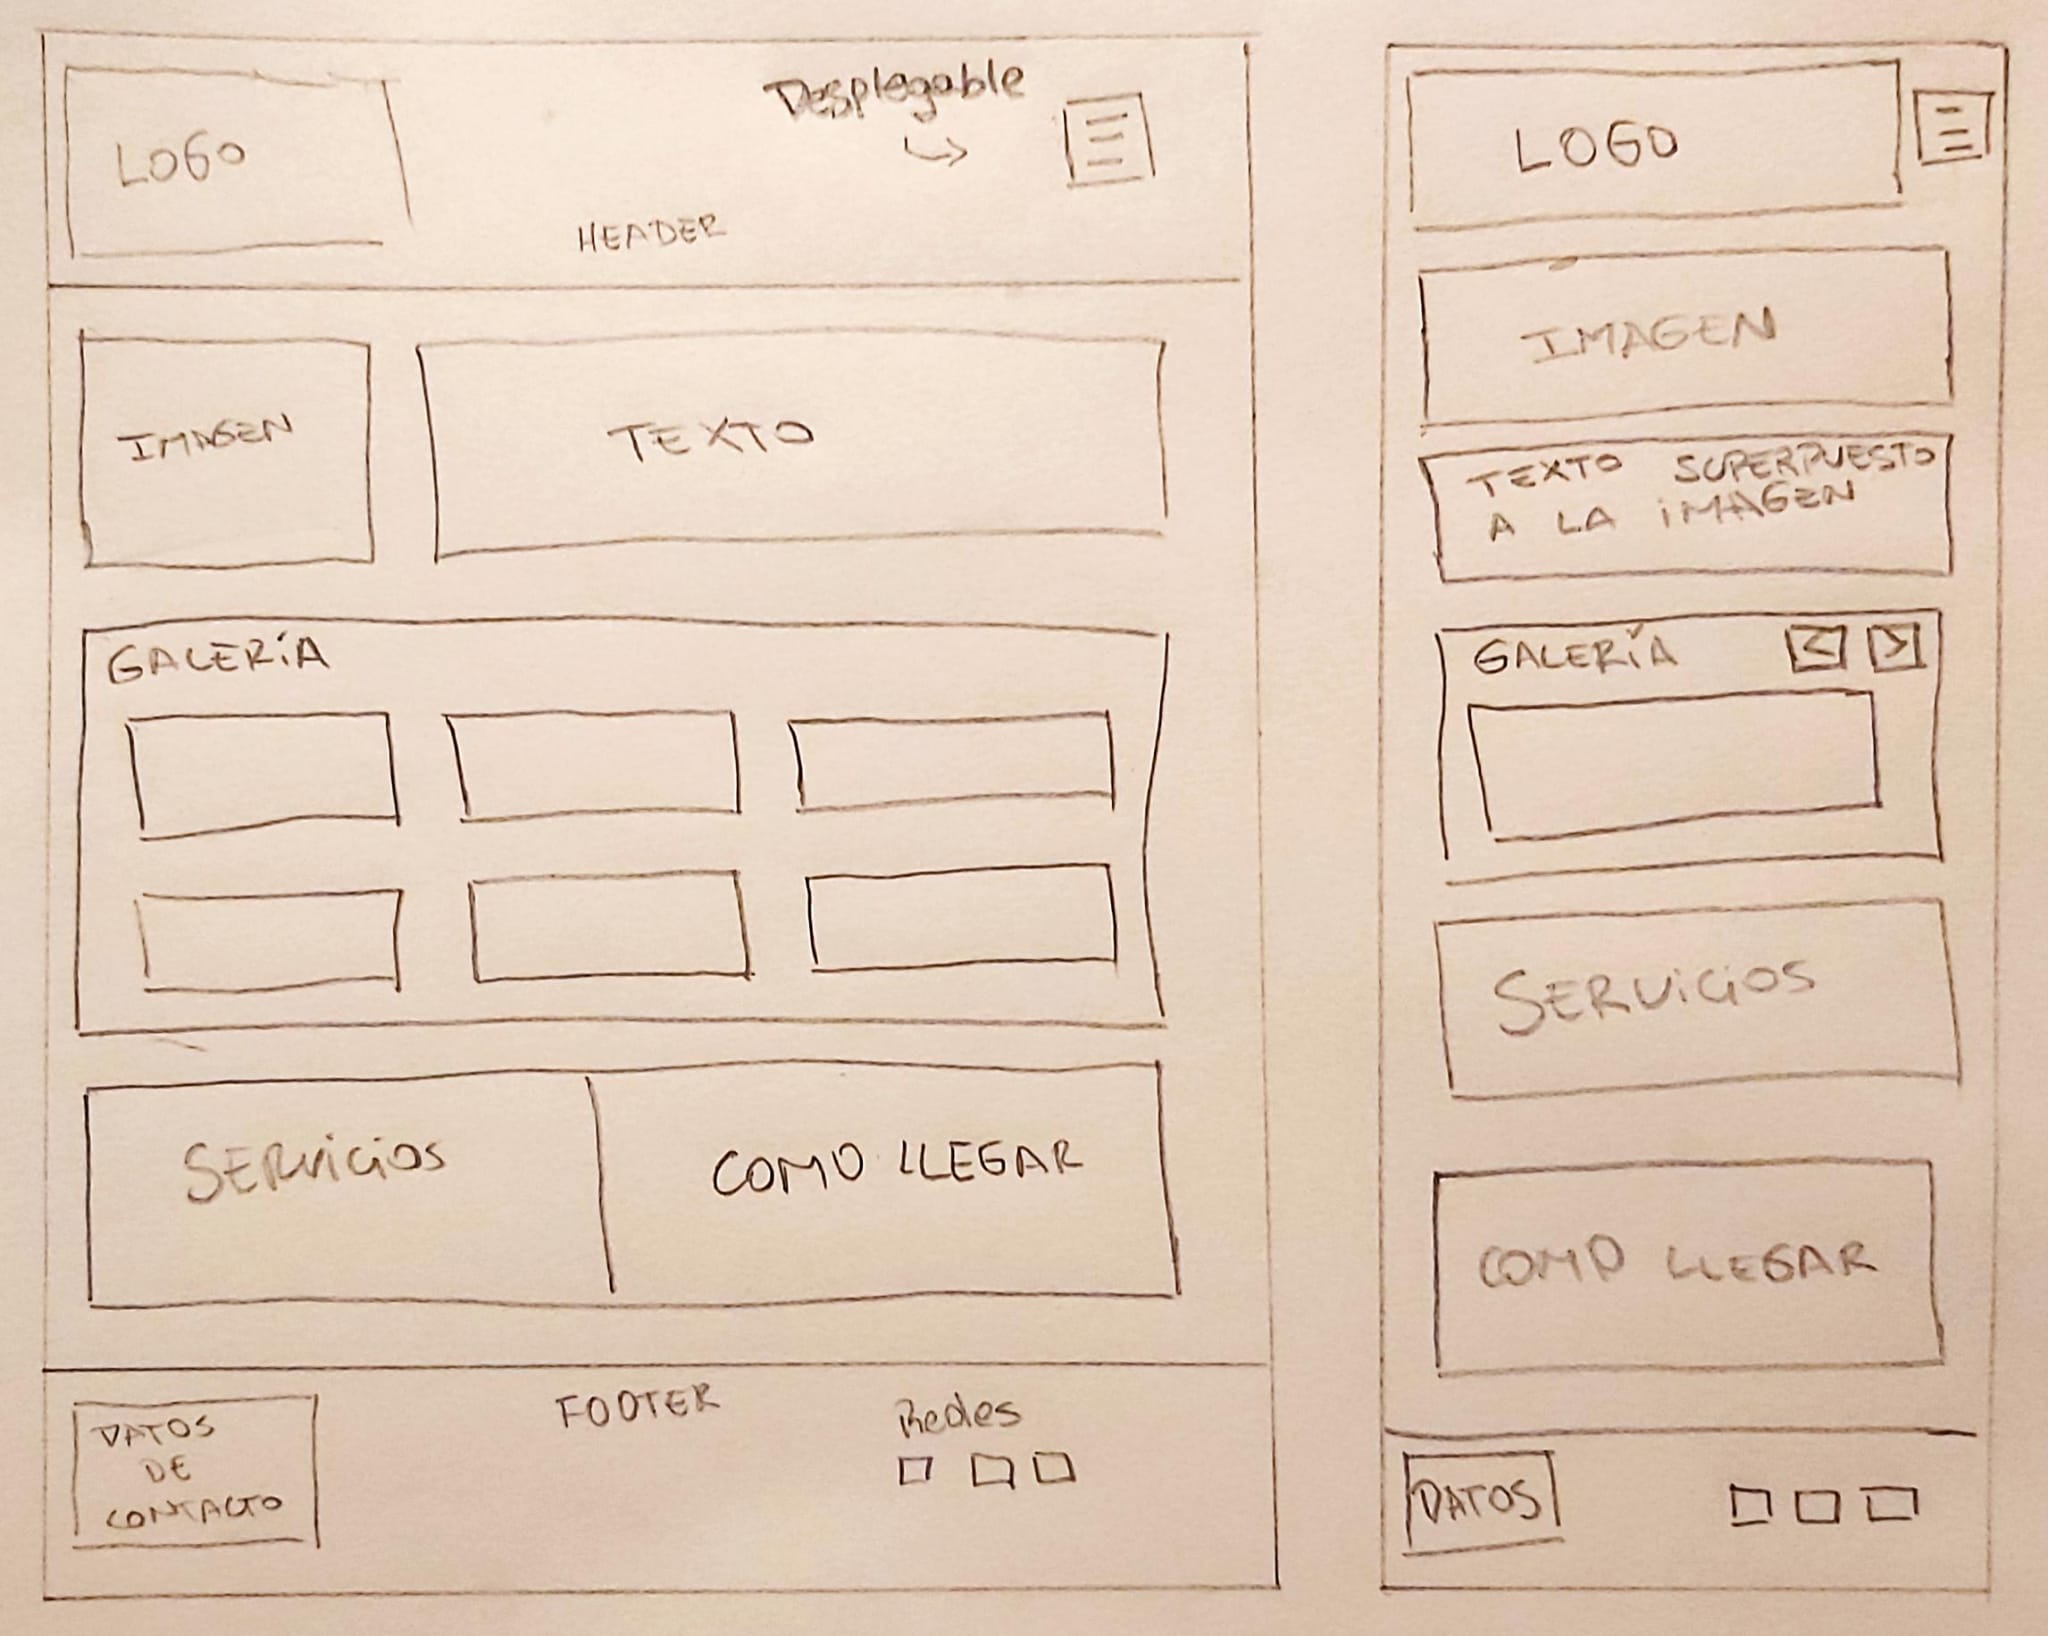 LOGO
Desplegable
HEADER
IMAGEN
TEXTO
GALERÍA
SERVICIOS
COMO LLEGAR
DATOS
DE
CONTACTO
FOOTER
Redes
LOGO
IMAGEN
TEXTO SUPERPUESTO
A LA IMAGEN
GALERÍA < >
SERVICIOS
COMO LLEGAR
DATOS